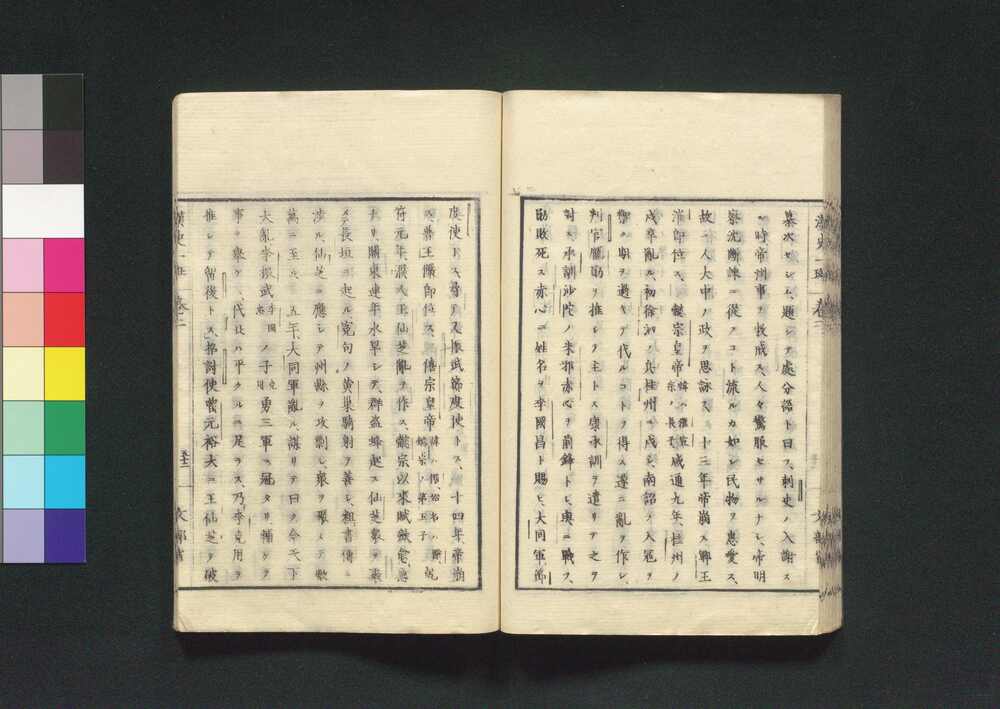 纂次セシム、題シテ處分語ト曰フ、刺史ノ入謝ス
ル時帝州事ヲ敕戒ス人々驚服セサルナシ、帝明
察沈斷諫ニ從フコト流ルカ如シ民物ヲ惠愛ス、
故ニ人大中ノ政ヲ思詠ス、十三年帝崩ス鄆王
淮即位ス、懿宗皇帝 咸通九年、桂州ノ
戍卒亂ル、初徐泗ノ兵桂州ニ戍シ、南詔ノ入冠ヲ
ノ期ヲ過キテ代ルコトヲ得ス遂ニ亂ヲ作シ、
判官龐勛ヲ推シテ主トス康承訓ヲ遣リテ之ヲ
討ス承訓沙陀ノ朱邪赤心ヲ前鋒トシ與ニ戰フ、
勛敗死ス赤心ニ姓名ヲ李國昌ト賜ヒ、大同軍節
度使トス、尋テ又振武節度使トス、十四年、帝崩
ス普王儼即位ス、僖宗皇帝 乾
符元年、濮人王仙芝亂ヲ作ス、懿宗以來賦歛愈急
ナリ關東連年水旱シテ、群盗蜂起ス仙芝衆ヲ聚
メ長垣ニ起ル寃句ノ黄巣騎射ヲ善シ、粗書傳ニ
渉ル仙芝ニ應シテ州縣ヲ攻剽シ、衆ヲ聚メテ數
萬ニ至ル、五年、大同軍亂ル、謀リテ曰ク今天下
大亂李振武 ノ子 勇三軍ニ冠タリ輔ケテ
事ヲ擧ケハ、代北ハ平クルニ足ラス、乃李克用ヲ
推シテ留後トス、招討使曾元裕大ニ王仙芝ヲ破
漢史一班 卷二
五十二
文部省